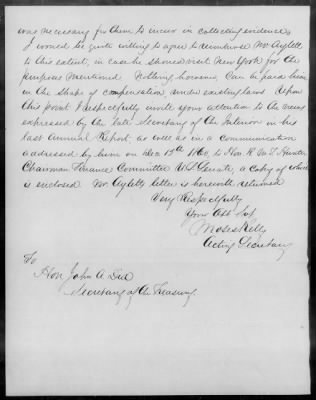 was necessary for them to incur in collecting evidence
I would be quite willing to agree to reimburse Mr Aylett
to this extent, in case he should visit New York for the
purpose mentioned. Nothing however, can be paid him
in the shape of compensation under existing laws. Upon
this point I respectfully invite your attention to the views
expressed by the late Secretary of the Interior in his
last Annual Report, as well as in a communication
addressed by him on Dec 17th 1860, to Hon. R. M. T. Hunter
Chairman Finance Committee U.S. Senate, a copy of which
is enclosed. Mr Ayletts letter is herewith returned
Very Respectfully
Your Obt Svt
Moses Kelly
Acting Secretary
To
Hon. John A Dix
Secretary of the Treasury